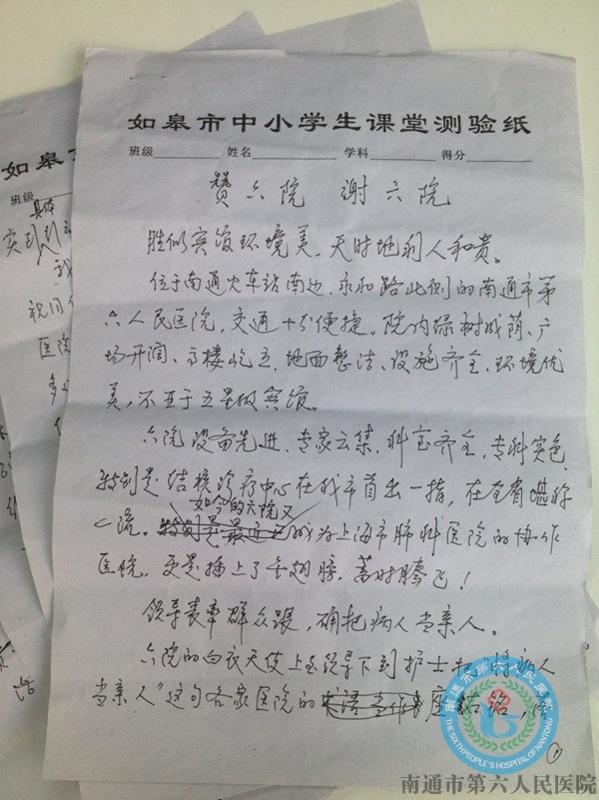 如皋市中小学生课堂测验纸
班级 姓名 学科 得分
赞六院 谢六院
胜似宾馆环境美，天时地利人和贵。
位于南通火车站南边、永和路北侧的南通市第
六人民医院，交通十分便捷。院内绿树成荫、广
场开阔、高楼屹立、地面整洁、设施齐全、环境优
美，不亚于五星级宾馆。
六院设备先进、专家云集、科室齐全、专科突出，
特别是结核诊疗中心在我市首出一指，在全省堪称
一流。如今的六院又成为上海市肺科医院的协作
医院，更是插上了金翅膀，蓄时腾飞！
领导表率群众跟，确把病人当亲人。
六院的白衣天使上至领导下到护士把“将病人
当亲人”这句各家医院的座右铭，
①
如皋
班级
具体
实到
我
祝同
医院
多
南通市第六人民医院
THE SIXTH PEOPLE'S HOSPITAL OF NANTONG
南通市第六人民医院